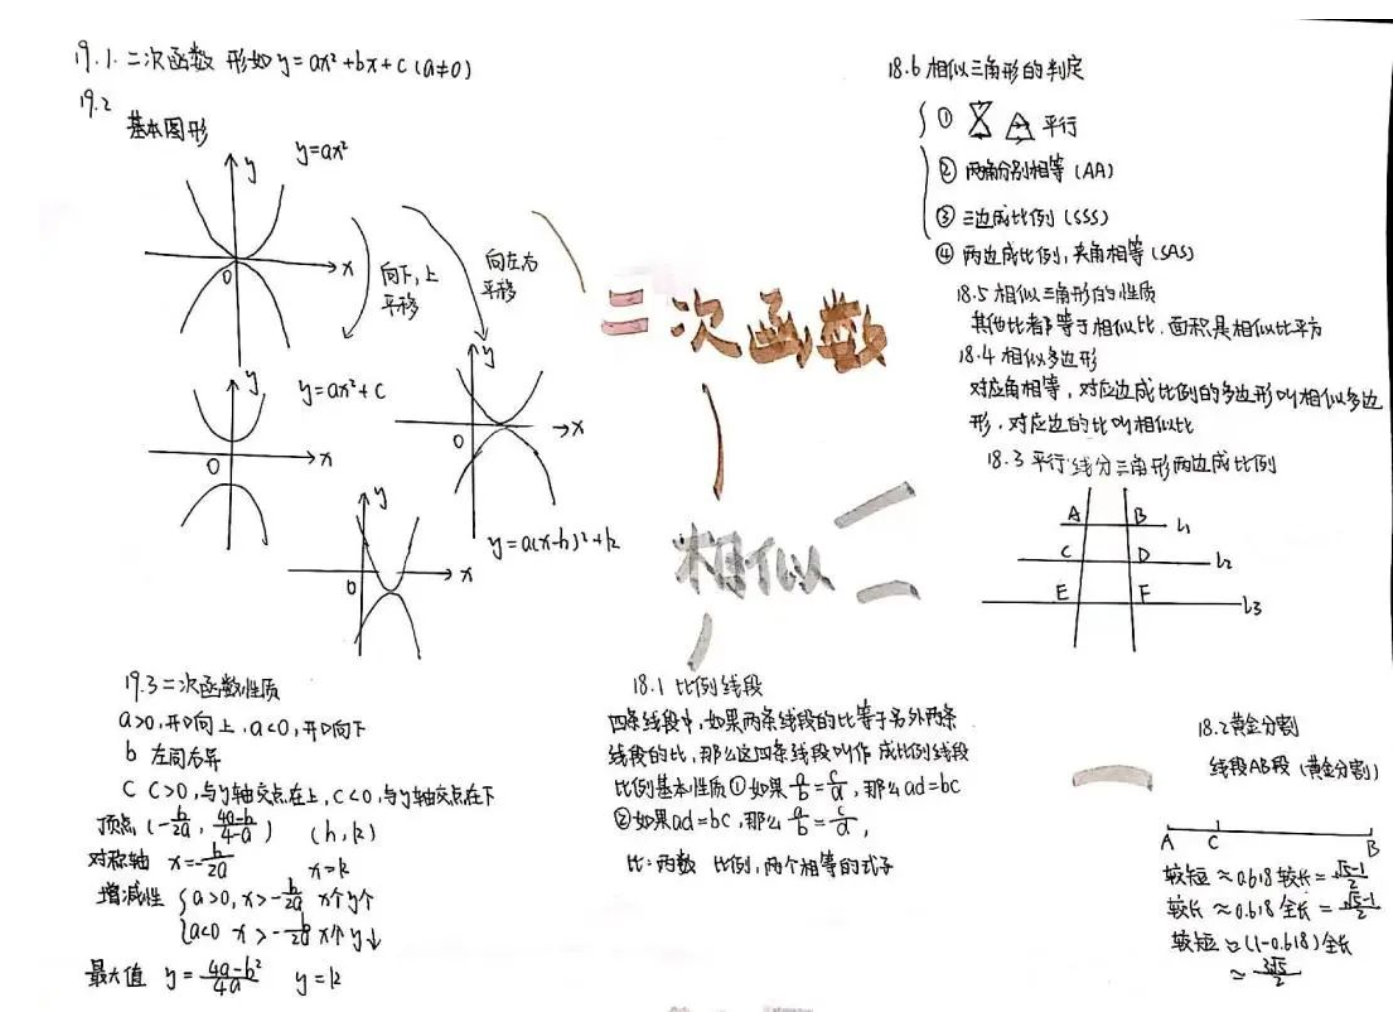 19.1. 二次函数 形如y=ax²+bx+c(a≠0)
19.2
基本图形
y=ax²
y
x
0
向下,上
平移
向左右
平移
y=ax²+c
y
x
0
y
x
0
y=a(x-h)²+k
y
x
0
19.3 二次函数性质
a>0,开口向上,a<0,开口向下
b 左同右异
C C>0,与y轴交点在上,C<0,与y轴交点在下
顶点(-b/2a, 4a-b/4-a) (h,k)
对称轴 x=-b/2a x=k
增减性 {a>0,x>-b/2a x个y个
{a<0 x>-b/2a x个y↓
最大值 y=4a-b²/4a y=k
二次函数
相似
18.1 比例线段
四条线段中,如果两条线段的比等于另外两条
线段的比,那么这四条线段叫作 成比例线段
比例基本性质①如果a/b=c/d,那么ad=bc
②如果ad=bc,那么a/b=c/d,
比:两数 比例,两个相等的式子
18.6 相似三角形的判定
① 平行
② 两角分别相等(AA)
③ 三边成比例(SSS)
④ 两边成比例,夹角相等(SAS)
18.5 相似三角形的性质
其他比都等于相似比.面积是相似比平方
18.4 相似多边形
对应角相等,对应边成比例的多边形叫相似多边
形.对应边的比叫相似比
18.3 平行线分三角形两边成比例
A B l₁
C D l₂
E F l3
18.2 黄金分割
线段AB段(黄金分割)
A C B
较短≈0.618较长=√5-1/2
较长≈0.618全长=√5-1/2
较短≈(1-0.618)全长
≈3√5/2